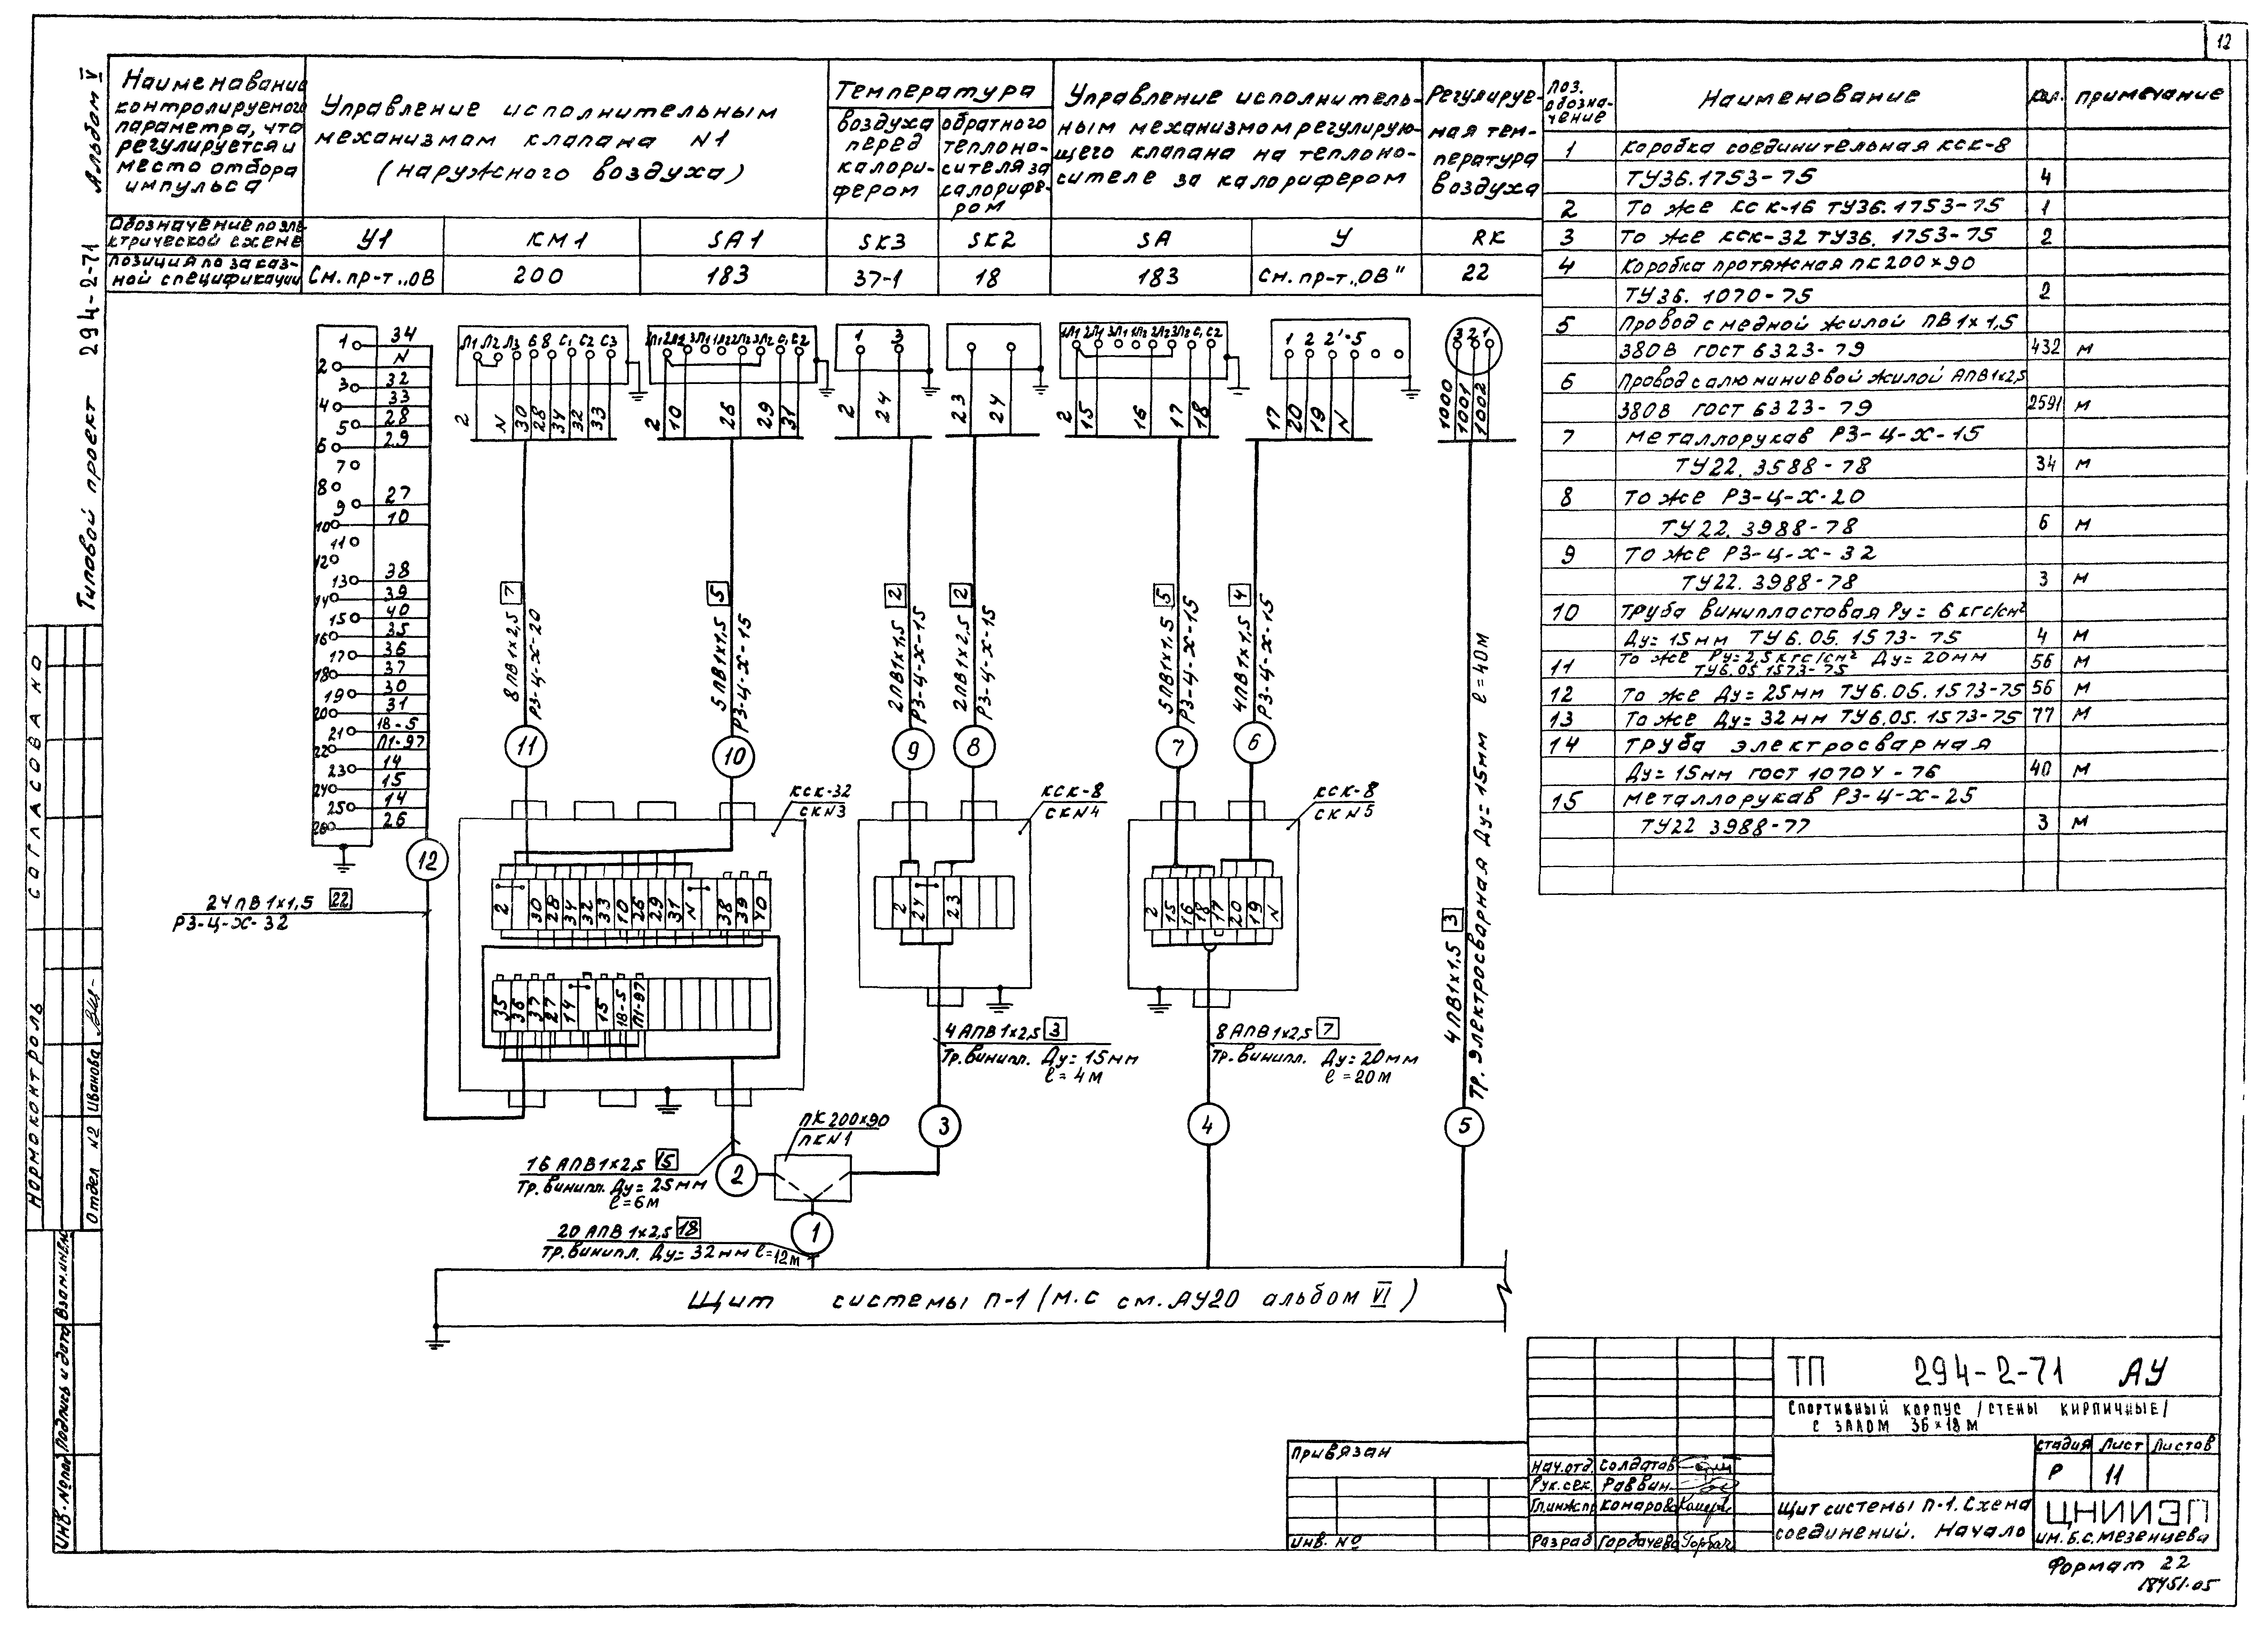 12
Типовой проект 294-2-71 Альбом V
Наименование
контролируемого
параметра, что
регулируется и
место отбора
импульса
Управление исполнительным
механизмом клапана N1
(наружного воздуха)
Температура
воздуха
перед
калори-
фером
обратного
теплоно-
сителя за
калорифе-
ром
Управление исполнитель-
ным механизмом регулирую-
щего клапана на теплоно-
сителе за калорифером
Регулируе-
мая тем-
пература
воздуха
Обозначение по эле-
ктрической схеме
У1 КМ1 SA1 SK3 SK2 SA У RK
Позиция по заказ-
ной спецификации
См. пр-т „ОВ 200 183 37-1 18 183 См. пр-т „ОВ" 22
Поз. обозна-чение Наименование кол. примечание
1 Коробка соединительная КСК-8
ТУ36.1753-75 4
2 То же КСК-16 ТУ36.1753-75 1
3 То же КСК-32 ТУ36.1753-75 2
4 Коробка протяжная ПК200х90
ТУ36.1070-75 2
5 Провод с медной жилой ПВ1х1,5
380В ГОСТ 6323-79 432 м
6 Провод с алюминиевой жилой АПВ1х2,5
380В ГОСТ 6323-79 2591 м
7 Металлорукав РЗ-Ц-Х-15
ТУ22.3588-78 34 м
8 То же РЗ-Ц-Х-20
ТУ22.3988-78 6 м
9 То же РЗ-Ц-Х-32
ТУ22.3988-78 3 м
10 Труба винипластовая Ру=6кгс/см²
Ду=15мм ТУ6.05.1573-75 4 м
11 То же Ру=2,5кгс/см² Ду=20мм
ТУ6.05.1573-75 56 м
12 То же Ду=25мм ТУ6.05.1573-75 56 м
13 То же Ду=32мм ТУ6.05.1573-75 77 м
14 Труба электросварная
Ду=15мм ГОСТ 10704-76 40 м
15 Металлорукав РЗ-Ц-Х-25
ТУ22 3988-77 3 м
1 34
2 N
3 32
4 33
5 28
6 29
7
8
9 27
10 10
11
12
13 38
14 39
15 40
16 35
17 36
18 37
19 30
20 31
21 18-5
22 П1-97
23 14
24 15
25 14
26 26
Л1 Л2 Л3 6 8 С1 С2 С3
2 N 30 28 34 32 33
1Л1 2Л2 3Л1 1Л2 2Л2 3Л2 С1 С2
2 10 26 29 31
1 3
2 24
23 24
1Л1 2Л1 3Л1 1Л2 2Л2 3Л2 С1 С2
2 15 16 17 18
1 2 2' 5
17 20 19 N
3 2 1
1000 1001 1002
8ПВ1х2,5 7
РЗ-Ц-Х-20
5ПВ1х1,5 5
РЗ-Ц-Х-15
2ПВ1х1,5 2
РЗ-Ц-Х-15
2ПВ1х2,5 2
РЗ-Ц-Х-15
5ПВ1х1,5 5
РЗ-Ц-Х-15
4ПВ1х1,5 4
РЗ-Ц-Х-15
4ПВ1х1,5 3
Тр. электросварная Ду=15мм ℓ=40м
11 10 9 8 7 6
12
24ПВ1х1,5 22
РЗ-Ц-Х-32
КСК-32
СКN3
КСК-8
СКN4
КСК-8
СКN5
2 30 28 34 32 33 10 26 29 31 N 38 39 40
35 36 37 27 14 15 18-5 П1-97
2 24 23
2 15 16 18 17 20 19 N
4АПВ1х2,5 3
Тр. винипл. Ду=15мм
ℓ=4м
8АПВ1х2,5 7
Тр. винипл. Ду=20мм
ℓ=20м
3 4 5
ПК200х90
ПКN1
16АПВ1х2,5 15
Тр. винипл. Ду=25мм
ℓ=6м
2
20АПВ1х2,5 18
Тр. винипл. Ду=32мм ℓ=12м
1
Щит системы П-1 (м.с см. АУ20 альбом VI)
Согласовано
Нормоконтроль
Отдел N2 Иванова
Инв. №под Подпись и дата Взам.инв.
Привязан
Инв. №
ТП 294-2-71 АУ
Спортивный корпус /стены кирпичные/
с залом 36×18м
Нач.отд. Солдатов
Рук.сек. Раввин
Гл.инж.пр Комарова
Разраб Горбачева
Стадия Лист Листов
Р 11
Щит системы П-1. Схема
соединений. Начало
ЦНИИЭП
им. Б.С. Мезенцева
Формат 22
18451-05